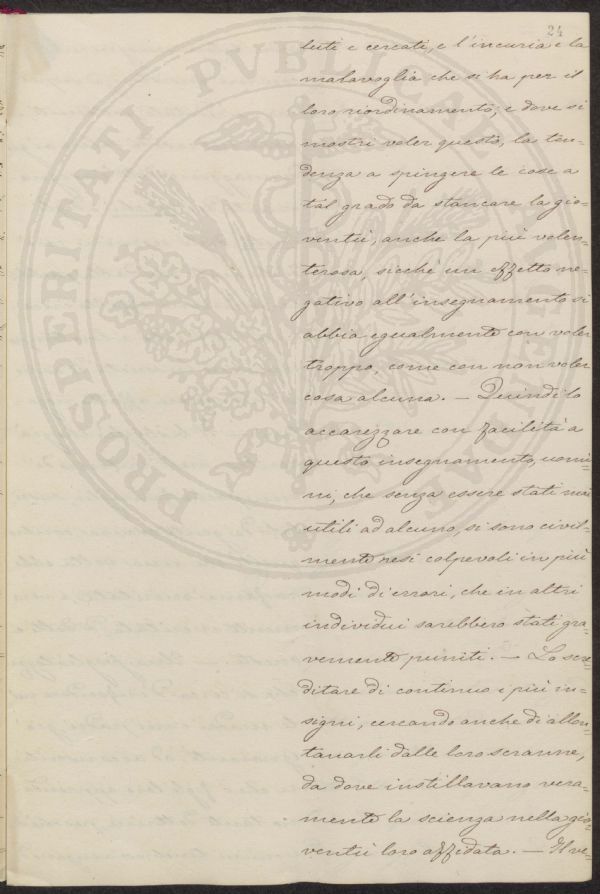 24
luti e cercati, e l'incuria e la
malavoglia che si ha per il
loro riordinamento; e dove si
mostri voler questo, la ten-
denza a spingere le cose a
tal grado da stancare la gio-
ventù, anche la più volen-
terosa, sicchè un effetto ne-
gativo all'insegnamento si
abbia egualmente con voler
troppo, come con non voler
cosa alcuna. — Quindi lo
accarezzare con facilità a
questo insegnamento, uomi-
ni, che senza essere stati mai
utili ad alcuno, si sono civil-
mente resi colpevoli in più
modi di errori, che in altri
individui sarebbero stati gra-
vemente puniti. — Lo scre-
ditare di continuo i più in-
signi, cercando anche di allon-
tanarli dalle loro scranne,
da dove instillavano vera-
mente la scienza nella gio-
ventù loro affidata. — Il ve-
PROSPERITATI PUBLICAE AUGENDAE